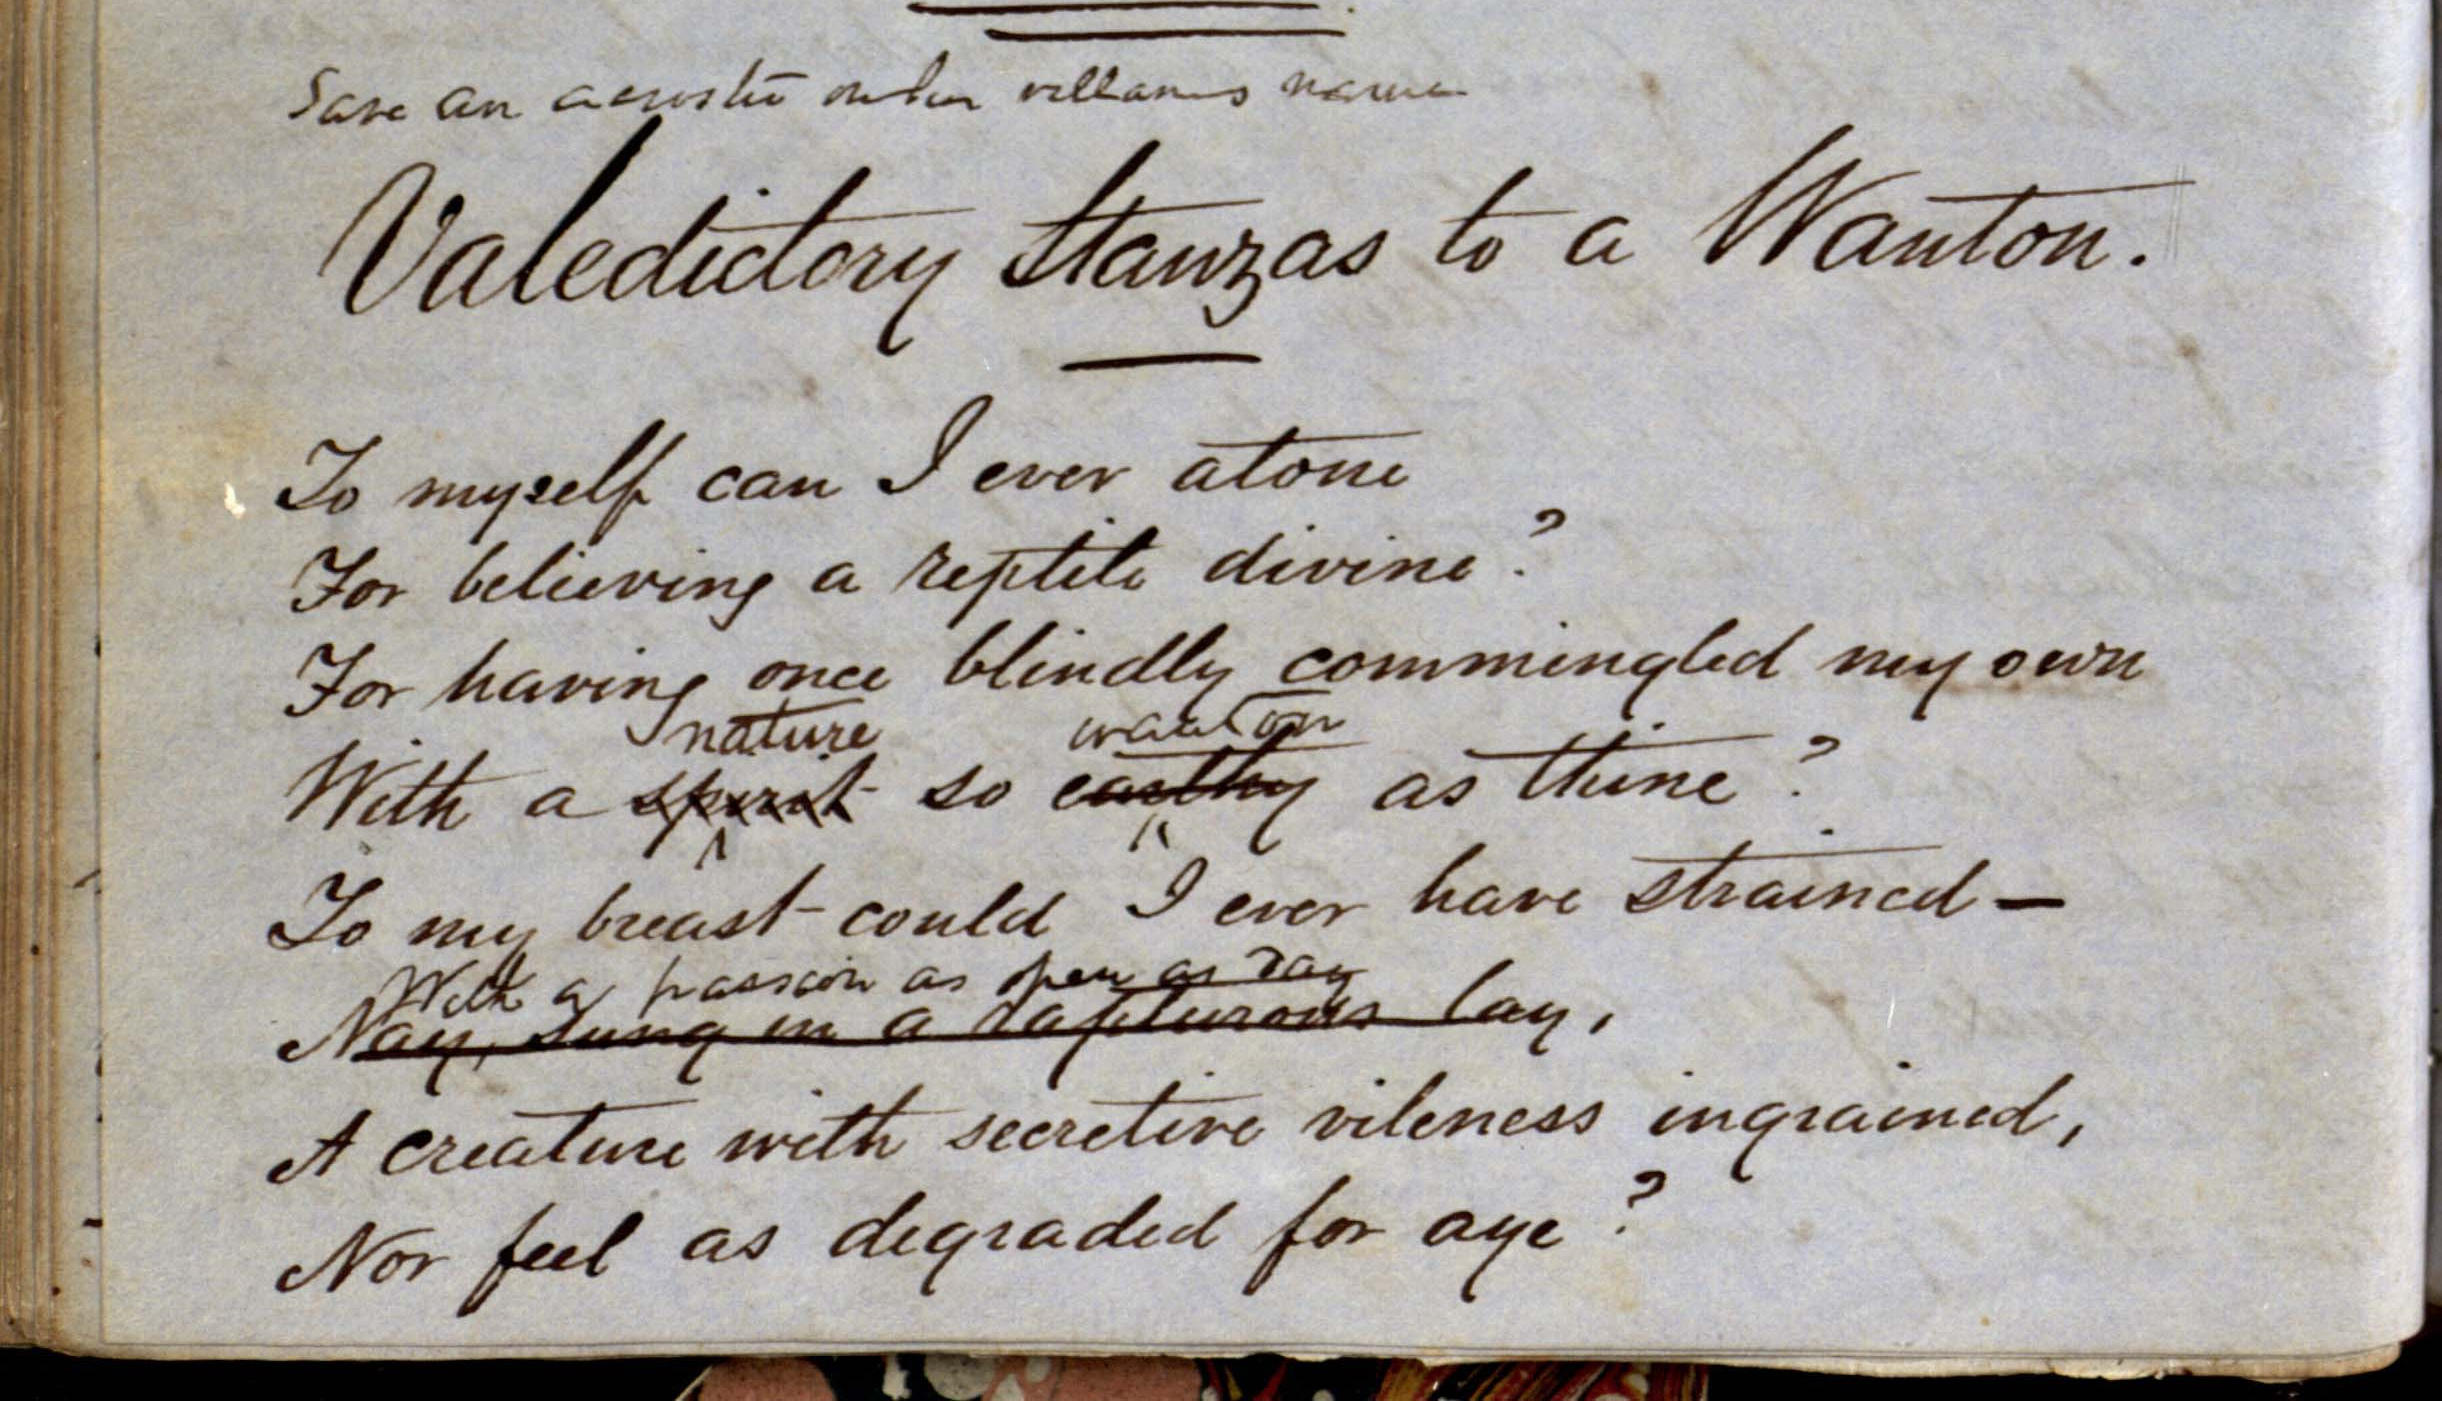 Save an acrostic on her villanous name
Valedictory Stanzas to a Wanton.
To myself can I ever atone
For believing a reptile divine?
For having once blindly commingled my own
nature wanton
With a spirit so earthy as thine?
To my breast could I ever have strained—
With a passion as open as day
Nay, sung in a rapturous lay,
A creature with secretive vileness ingrained,
Nor feel as degraded for aye?